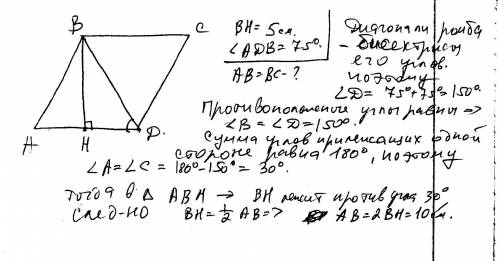 B C
A H D.
BH = 5см.
∠ADB = 75°.
AB = BC - ?
Диагонали ромба
- биссектрисы
его углов.
поэтому
∠D = 75°+75°=150°.
Противоположные углы равны =>
∠B = ∠D = 150°.
Сумма углов прилежащих одной
стороне равна 180°, поэтому
∠A = ∠C = 180°-150° = 30°.
тогда в △ ABH → BH лежит против угла 30°
след-но BH = ½ AB => AB = 2BH = 10см.